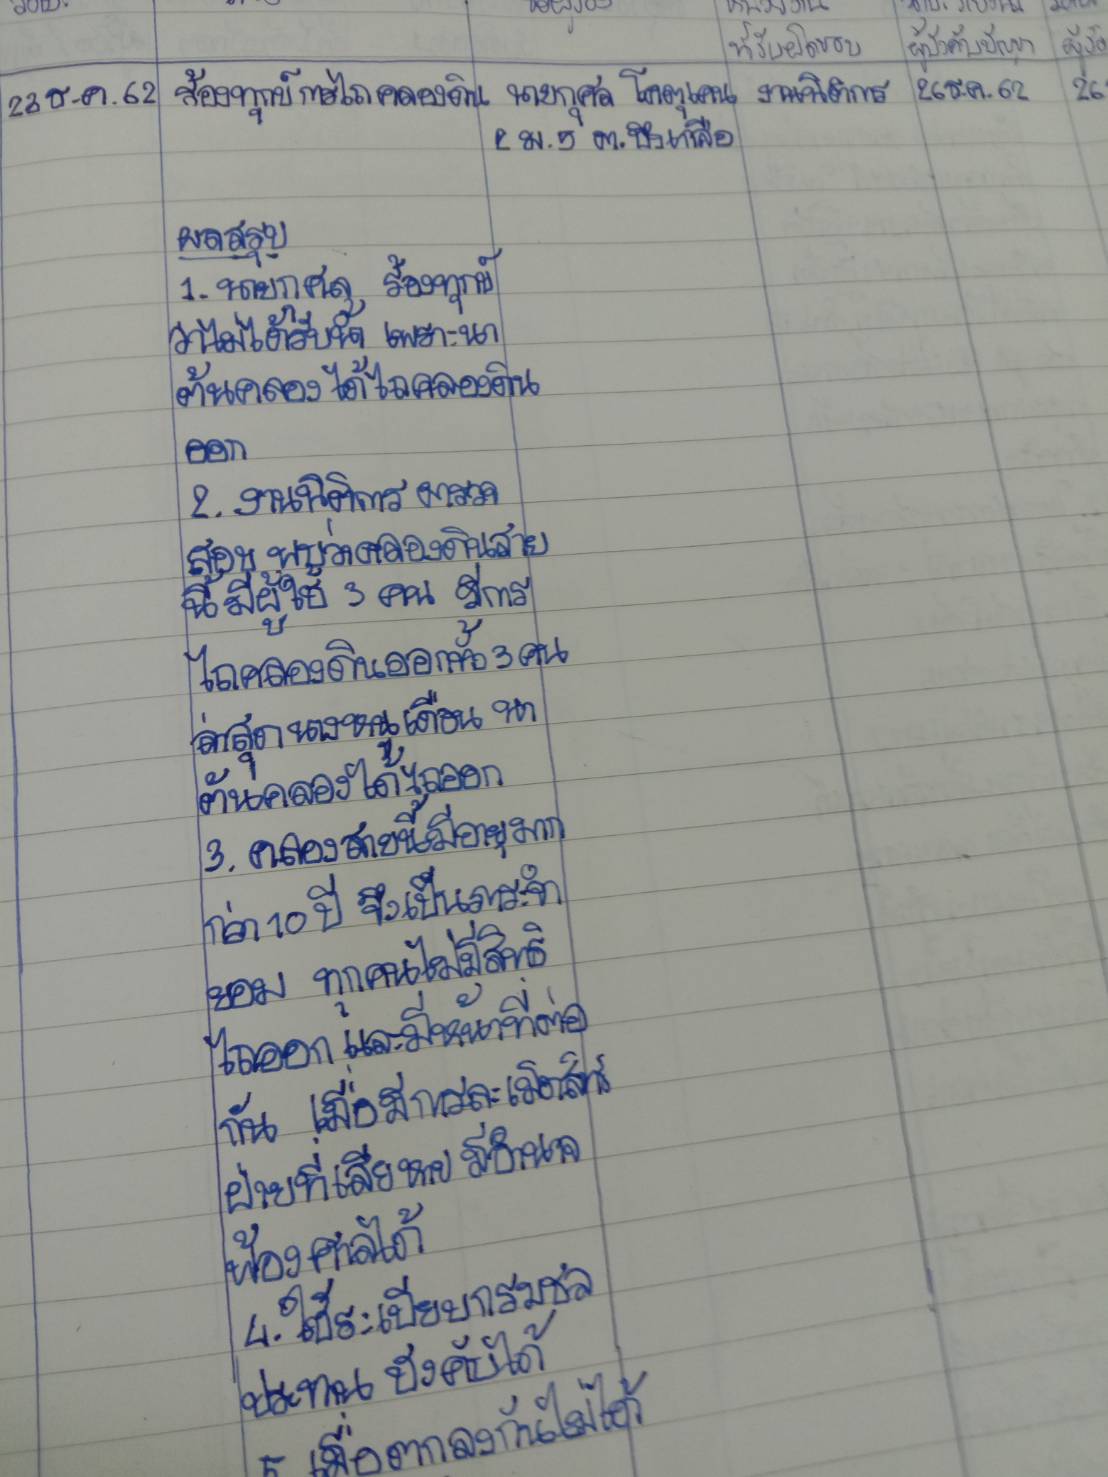 ที่รับผิดชอบ ผู้บังคับบัญชา
23 ธ.ค. 62 ร้องทุกข์ การไถคลองดิน นายกุศล งานนิติการ 26 ธ.ค. 62 26
2 ม.5 ต.บึงเกลือ
ผลสรุป
1. นายกุศล ร้องทุกข์
ว่าไม่ได้รับน้ำ เพราะนา
ต้นคลองได้ไถคลองดิน
ออก
2. งานนิติการ ตรวจ
สอบ พบว่าคลองดินสาย
นี้ มีผู้ใช้ 3 คน มีการ
ไถคลองดินออกทั้ง 3 คน
ล่าสุด นางหนูเดือน นา
ต้นคลองได้ไถออก
3. คลองสายนี้มีอายุมาก
กว่า 10 ปี จึงเป็นภาระจำ
ยอม ทุกคนไม่มีสิทธิ
ไถออก และมีหน้าที่ต่อ
กัน เมื่อมีการละเมิดสิทธิ
ฝ่ายที่เสียหาย มีอำนาจ
ฟ้องศาลได้
4. ใช้ระเบียบกรมชล
ประทาน บังคับได้
5. เมื่อตกลงกันไม่ได้